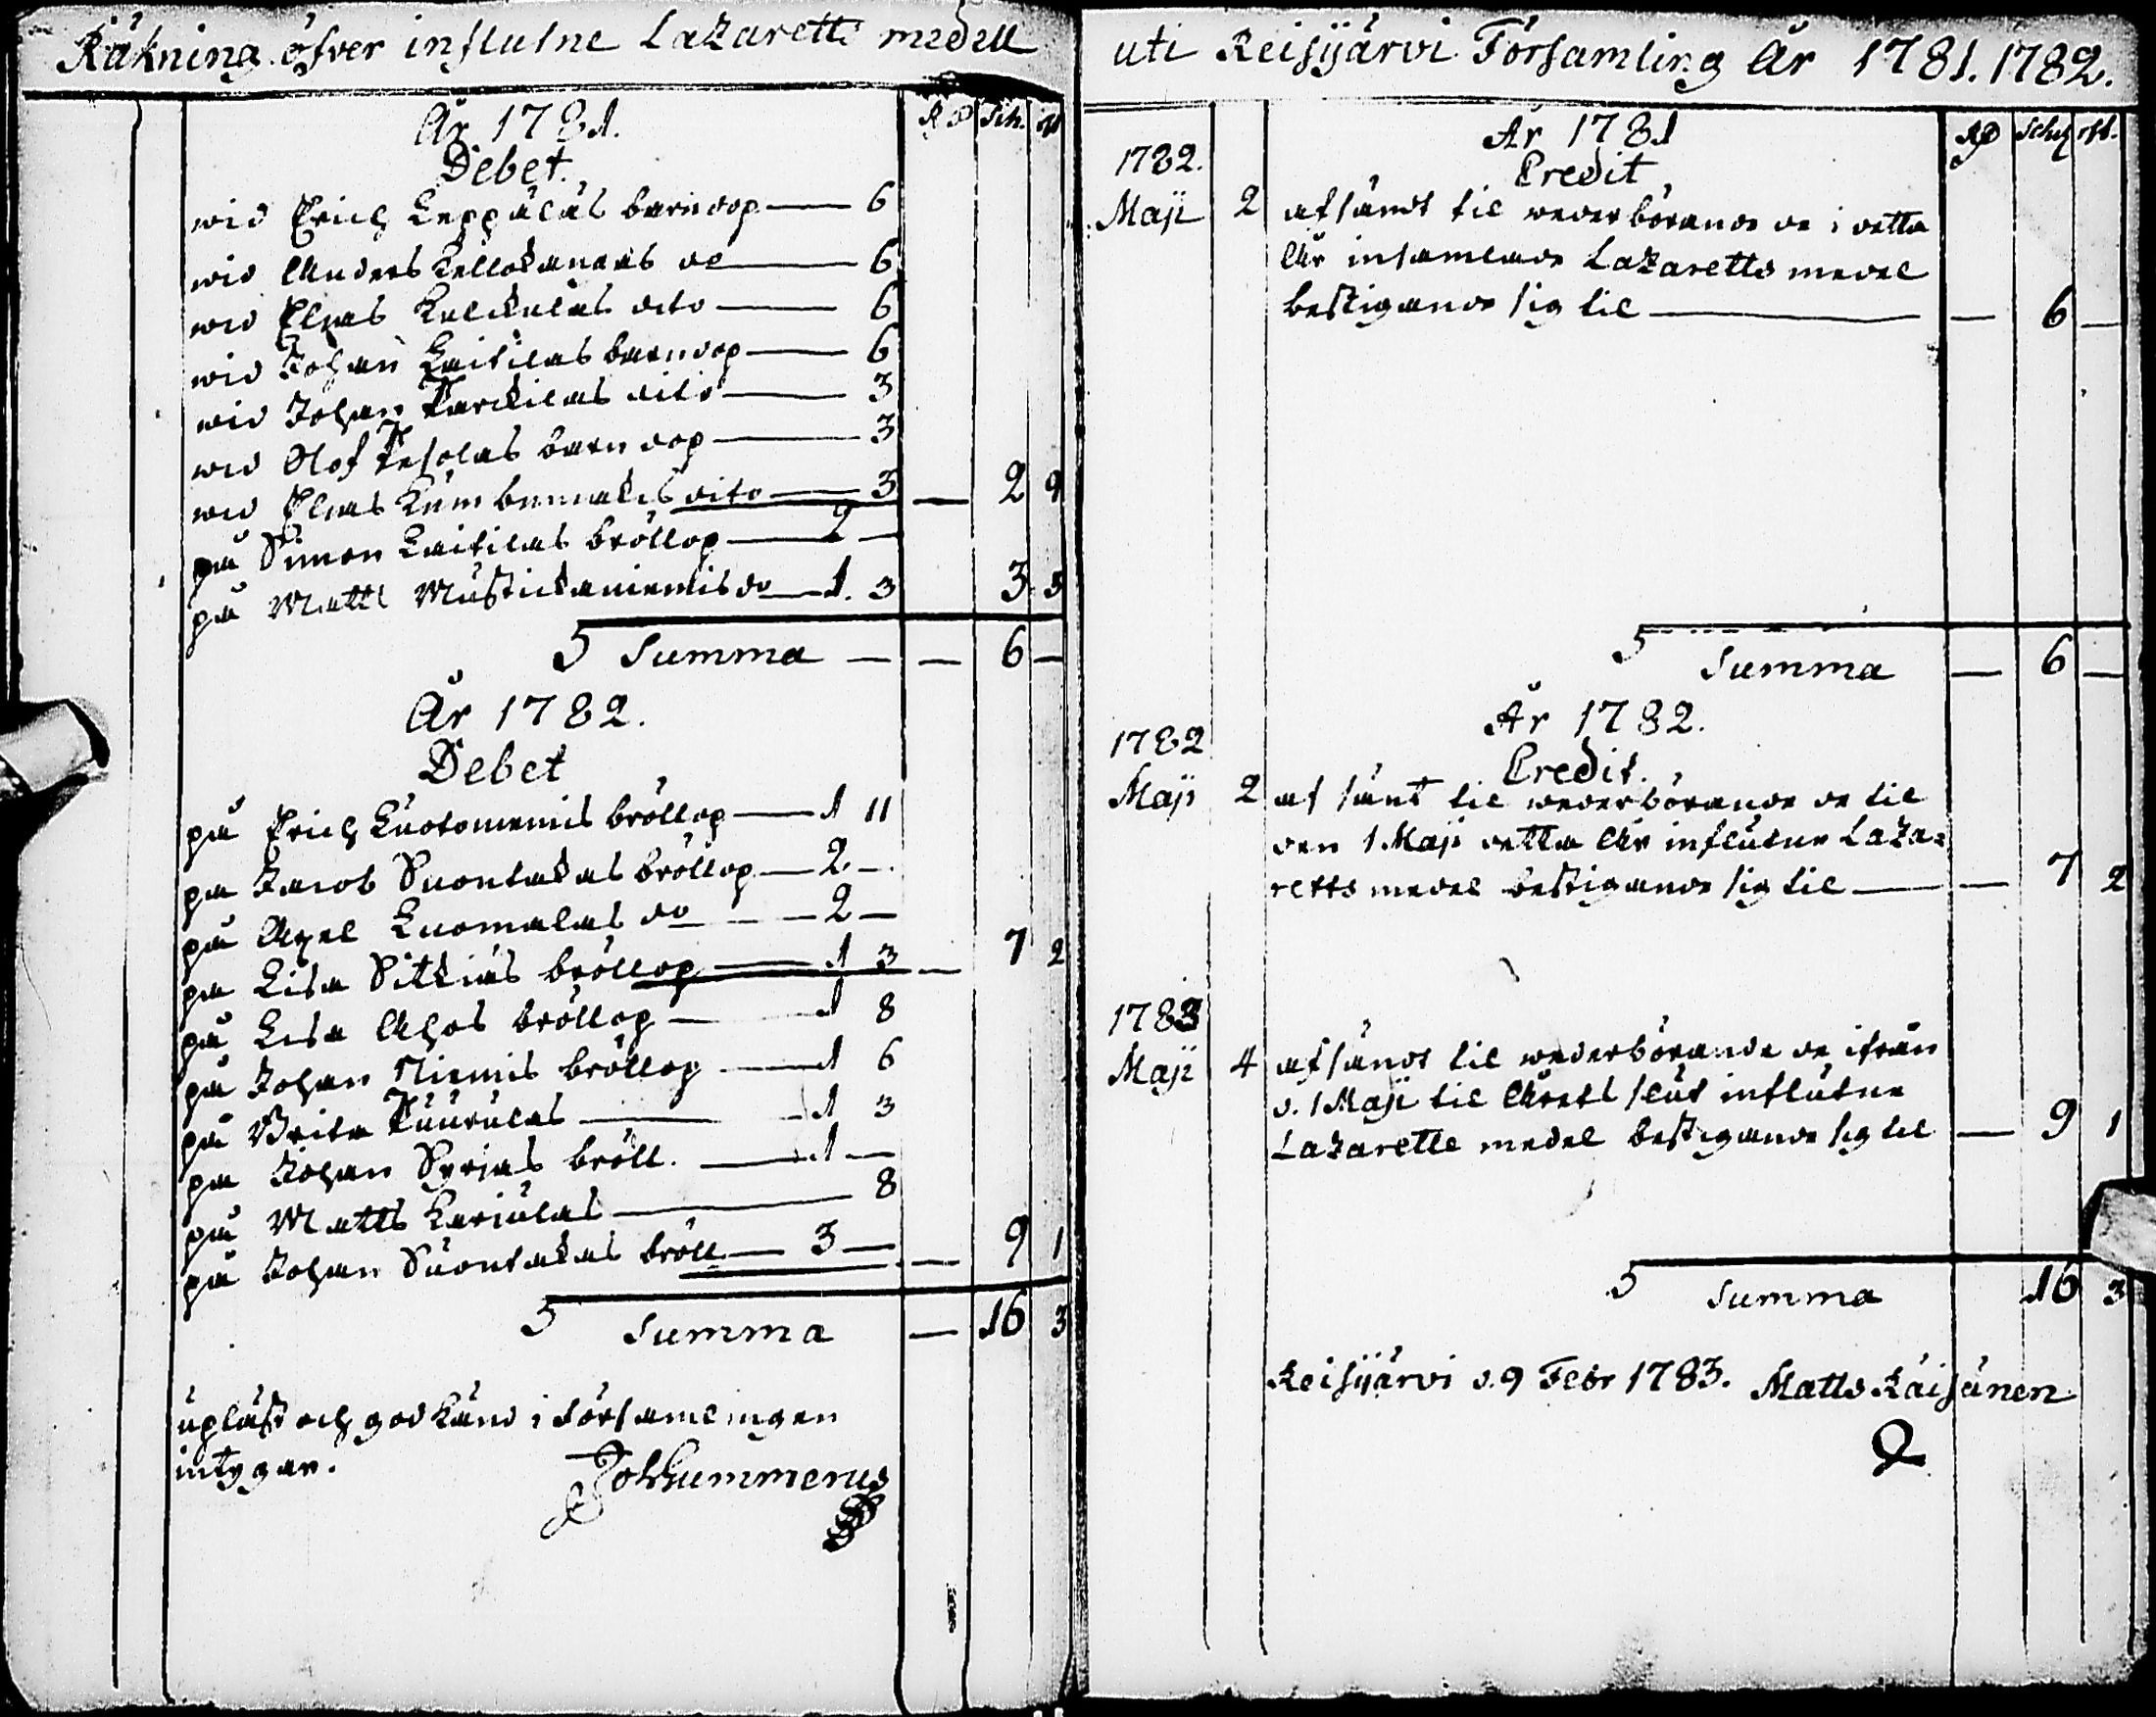 Räkning öfver influtne Lazaretts medell
År 1781.
Debet.
RD Sch. rst
wid Erich Leppäläs barndop — 6
wid Anders Kellokangas do — 6
wid Elias Kalckulas dito — 6
wid Johan Laitilas barndop — 6
wid Johan Parckilas dito — 3
wid Olof Pesolas barndop — 3
wid Elias Kumbumäkis dito — 3 — 2 9
på Simon Laitilas bröllop — 2 —
på Matts Mustickaniemis do — 1. 3 3 3
Summa — — 6 —
År 1782.
Debet
på Erich Luotoniemis bröllop — 1 11
på Jacob Suontakas bröllop — 2 —
på Axel Luomalas do — 2 —
på Lisa Pitkiäs bröllop — 1 3 — 7 2
på Lisa Ahos bröllop — 1 8
på Johan Niemis bröllop — 1 6
på Brita Puurulas — 1 3
på Johan Syrjäs bröll. — 1 —
på Matts Karjulas — 8
på Johan Suontakas bröll — 3 — — 9 1
Summa — 16 3
upläst och godkänd i Församlingen
intygar.
Joh Hummerus
uti Reisijärvi Församling År 1781. 1782.
År 1781
Credit
RD Schl rst.
1782.
Maji 2 afsändt til wederbörande de i detta
År insamlade Lazaretts medel
bestigande sig til — — 6 —
Summa — 6 —
År 1782.
Credit.
1782
Maji 2 afsänt til wederbörande de til
den 1 Maji detta År influtne Laza=
retts medel bestigande sig til — — 7 2
1783
Maji 4 afsändt til wederbörande de ifrån
d. 1 Maji til Årets slut influtne
Lazaretts medel bestigande sig til — 9 1
Summa 16 3
Reisijärvi d. 9 Febr 1783. Matts Räisänen